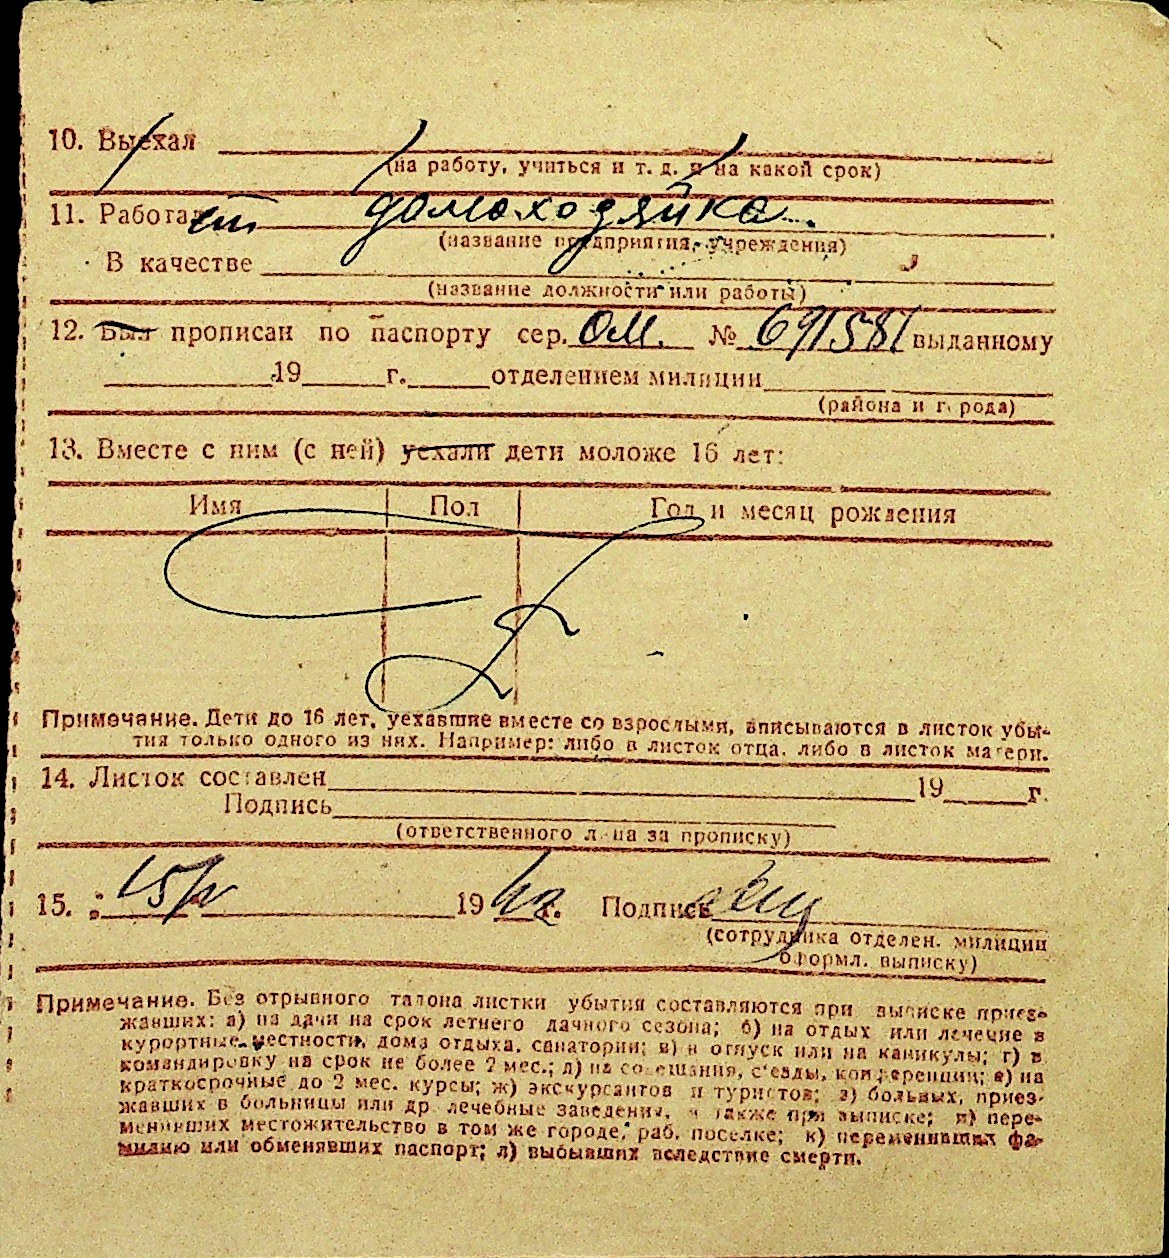 10. Выехал
(на работу, учиться и т. д. и на какой срок)
11. Работает домохозяйка
(название предприятия, учреждения)
В качестве
(название должности или работы)
12. Был прописан по паспорту сер. ОМ. № 691581 выданному
19 г. отделением милиции
(района и города)
13. Вместе с ним (с ней) уехали дети моложе 16 лет:
Имя Пол Год и месяц рождения
Примечание. Дети до 16 лет, уехавшие вместе со взрослыми, вписываются в листок убы-
тия только одного из них. Например: либо в листок отца, либо в листок матери.
14. Листок составлен 19 г.
Подпись
(ответственного лица за прописку)
15. 19 г. Подпись
(сотрудника отделен. милиции
оформл. выписку)
Примечание. Без отрывного талона листки убытия составляются при выписке приез-
жавших: а) на дачи на срок летнего дачного сезона; б) на отдых или лечение в
курортные местности, дома отдыха, санатории; в) в отпуск или на каникулы; г) в
командировку на срок не более 2 мес.; д) на совещания, с'езды, конференции; е) на
краткосрочные до 2 мес. курсы; ж) экскурсантов и туристов; з) больных, приез-
жавших в больницы или др. лечебные заведения, а также при выписке; и) пере-
менивших местожительство в том же городе, раб. поселке; к) переменивших фа-
милию или обменявших паспорт; л) выбывших вследствие смерти.